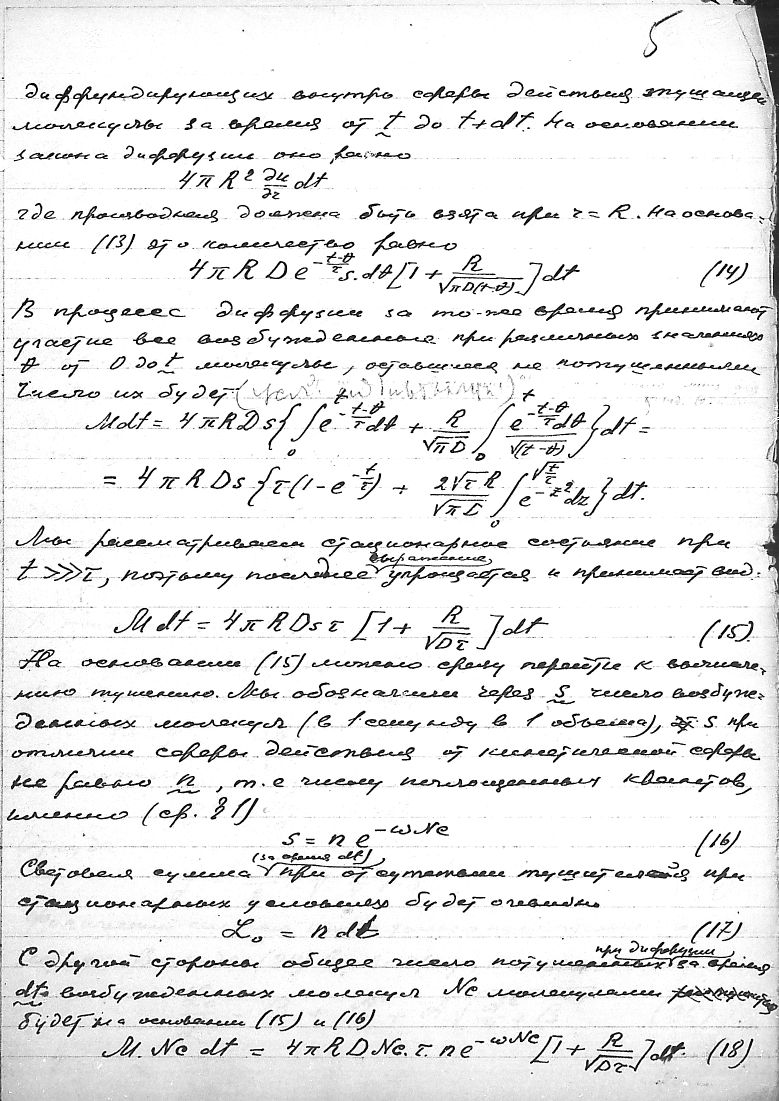 5
диффундирующих внутрь сферы действия тушащей
молекулы за время от t до t+dt. На основании
закона диффузии оно равно
4πR² ∂u/∂r dt
где производная должна быть взята при r = R. На основа-
нии (13) это количество равно
4πRDe^{-(t-θ)/τ} s.dθ[1 + R/√(πD(t-θ))]dt (14)
В процессе диффузии за то-же время принимают
участие все возбужденные при различных значениях
θ от 0 до t молекулы, оставшиеся не потушенными
Число их будет
Mdt = 4πRDs{∫₀^t e^{-(t-θ)/τ}dθ + R/√(πD) ∫₀^t e^{-(t-θ)/τ}dθ/√(t-θ)}dt =
= 4πRDs{τ(1-e^{-t/τ}) + 2√τ R/√(πD) ∫₀^{√(t/τ)} e^{-z²}dz}dt.
Мы рассматриваем стационарное состояние при
t >>> τ, поэтому последнее выражение упрощается и принимает вид:
Mdt = 4πRDsτ [1 + R/√(Dτ)]dt (15).
На основании (15) можно сразу перейти к вычисле-
нию тушению. Мы обозначили через s число возбуж-
денных молекул (в 1 секунду в 1 объема), s при
отличии сферы действия от кинетической сферы
не равно n, т.е числу поглощенных квантов,
именно (ср. §1)
s = ne^{-ωNc} (16)
Световая сумма (за время dt) при отсутствии тушителя при
стационарных условиях будет очевидно
L₀ = ndt (17)
С другой стороны общее число потушенных при диффузии за время
dt возбужденных молекул Nc молекулами
будет на основании (15) и (16)
M.Nc dt = 4πRDNc.τ.ne^{-ωNc}[1 + R/√(Dτ)]dt. (18)